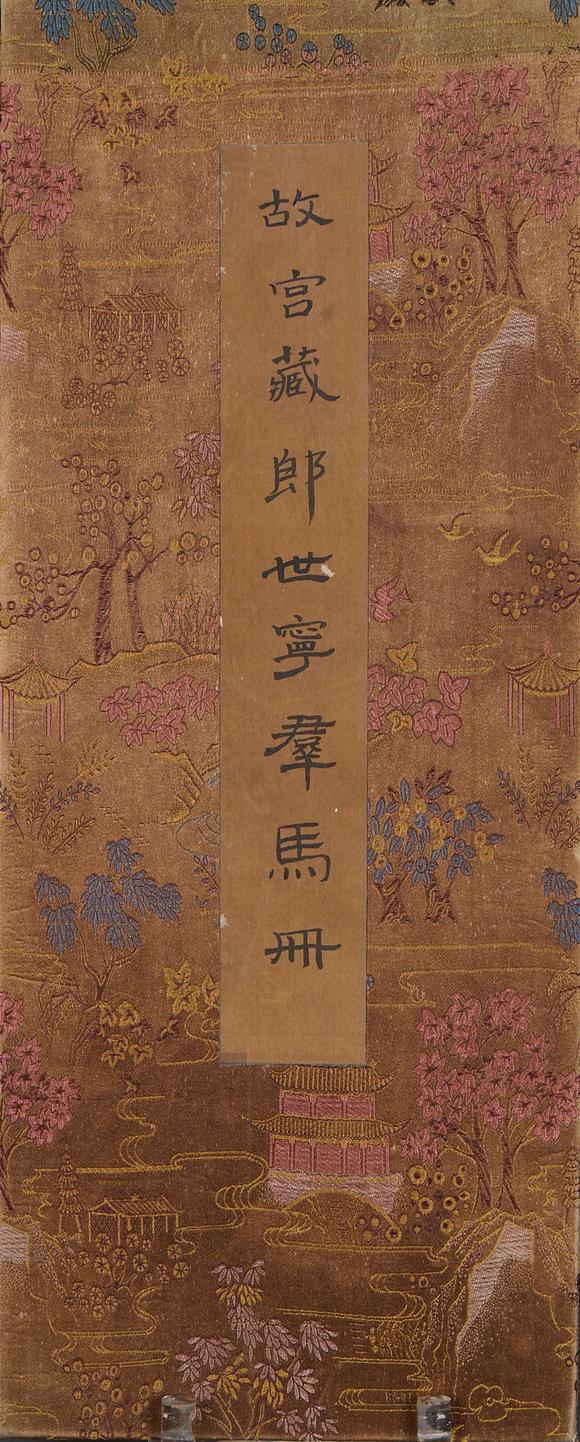 故宮藏郎世寧羣馬冊